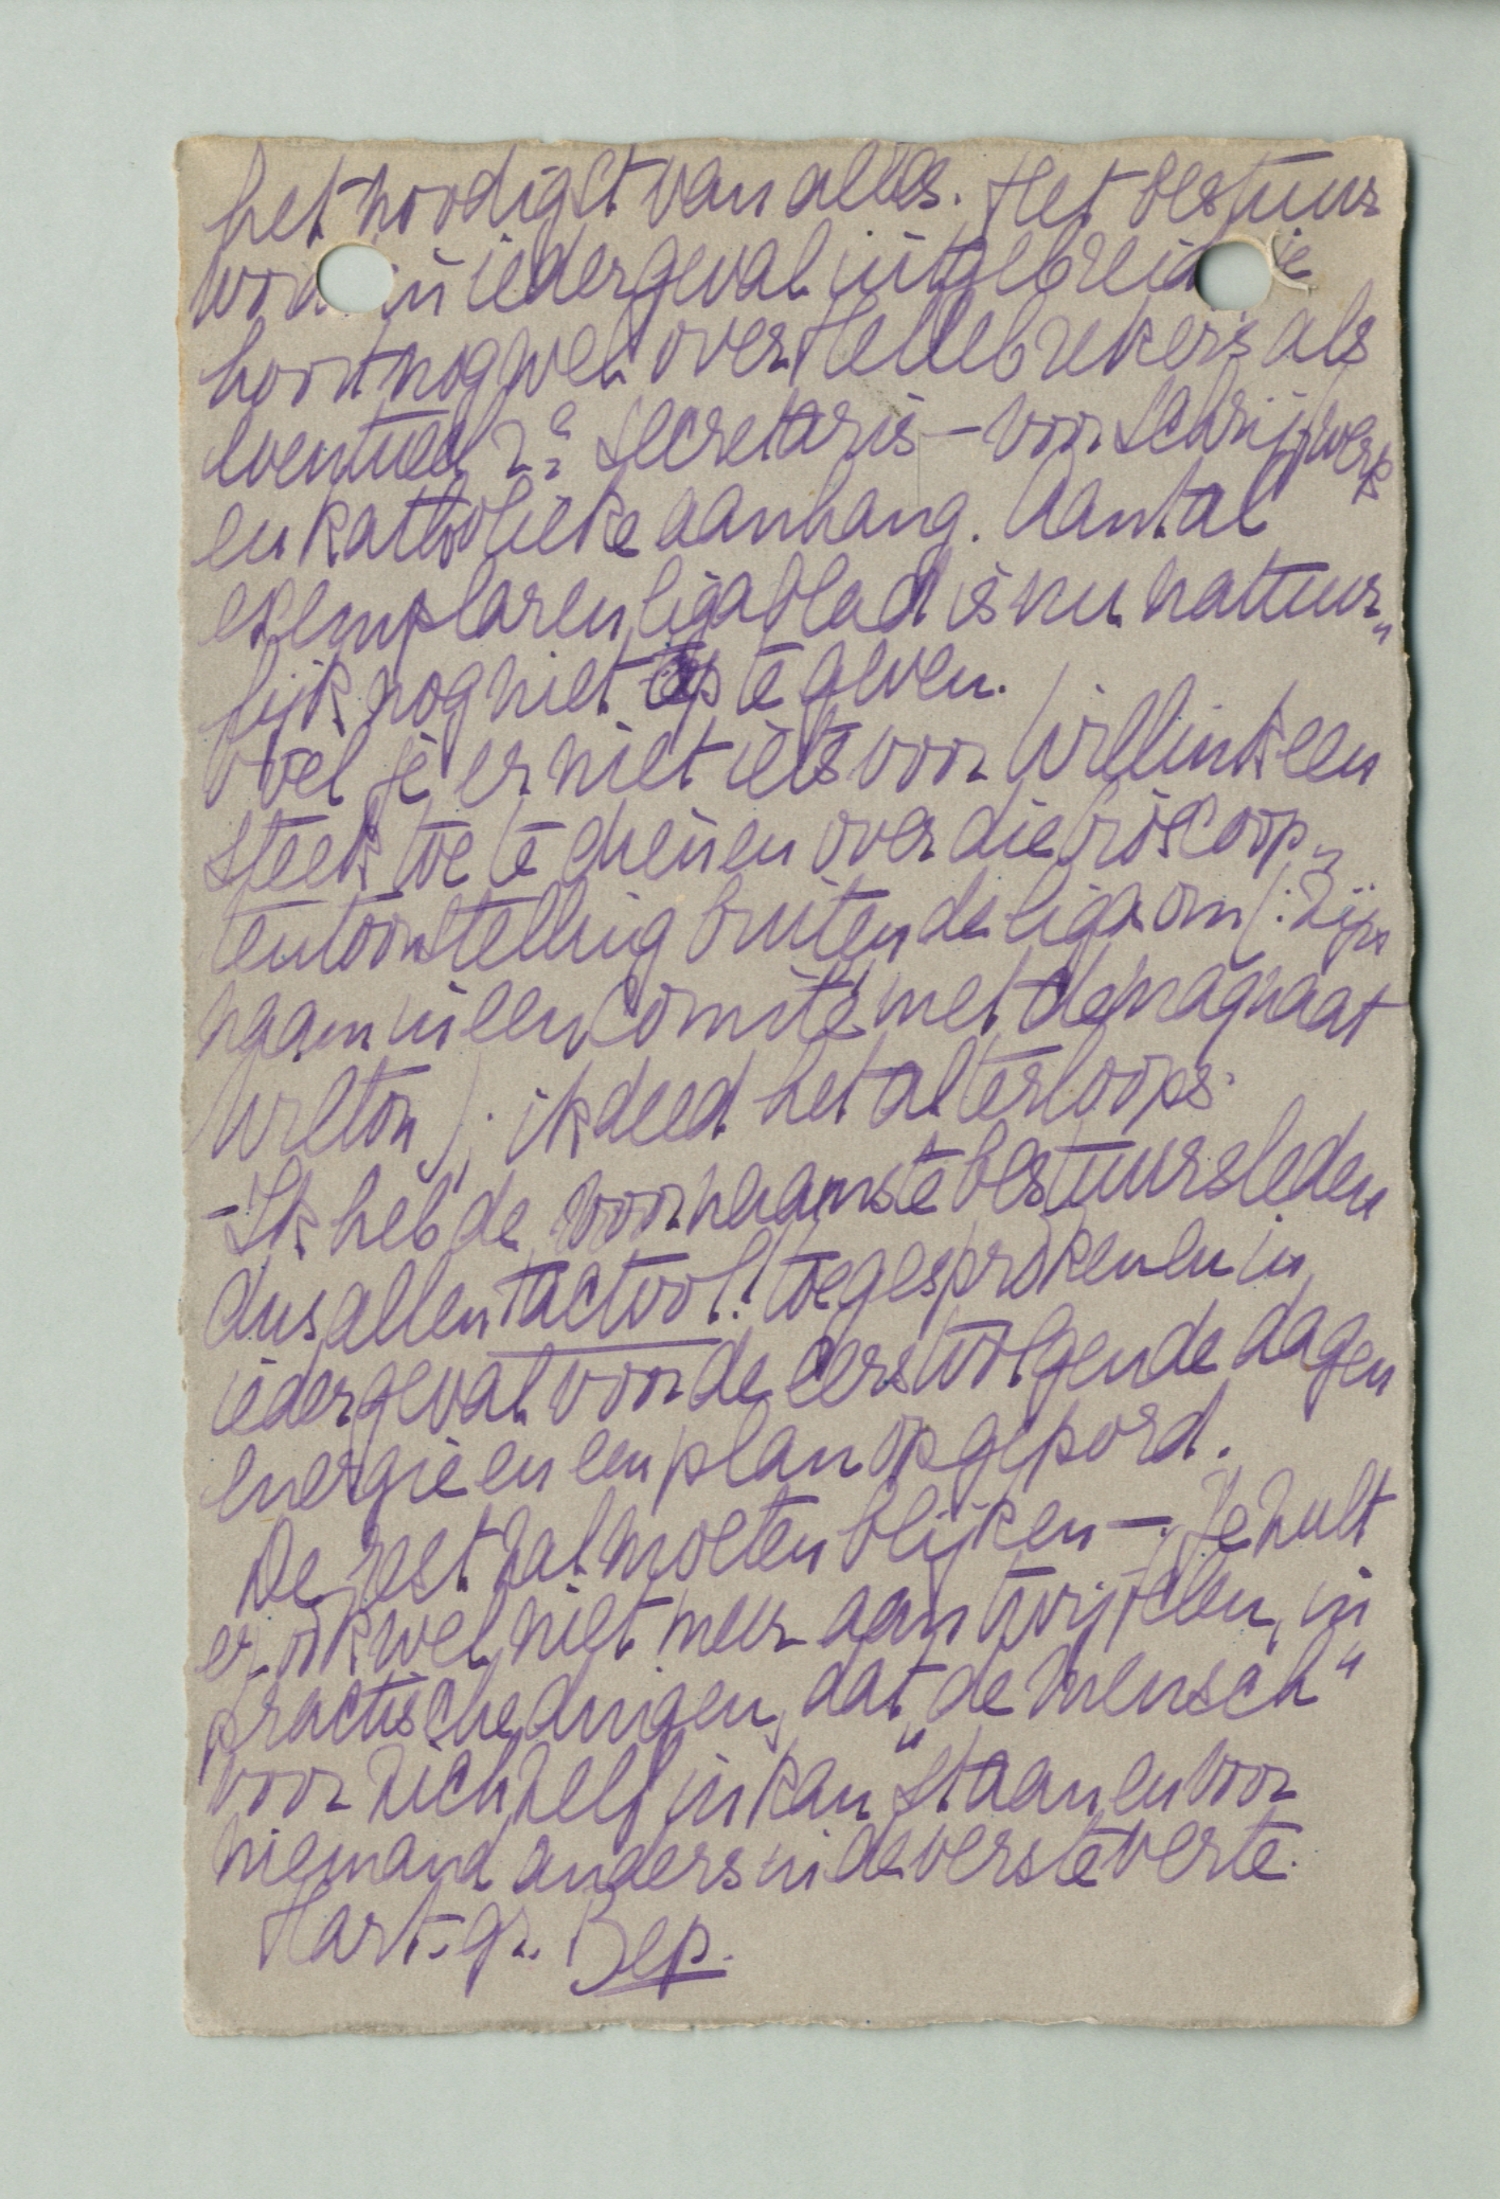 het noodigst van alles. Het bestuur
word in ieder geval uitgebreid je
hoort nog wel over Hellebrekers als
eventueel 2e secretaris – voor schrijfwerk
en katholieke aanhang. Aantal
exemplaren ligablad is nu natuur„
lijk nog niet op te geven.
Voel je er niet iets voor Willink een
steek toe te dienen over die bioscoop„
tentoonstelling buiten de liga om (: Zijn
naam in een comité met de magnaat
Wilton): ik deed het al terloops.
– Ik heb de voornaamste bestuursleden
dus allen tactvol! toegesproken en in
ieder geval voor de eerstvolgende dagen
energie en een plan opgepord.
De rest zal moeten blijken –. Je zult
er ook wel niet meer aan twijfelen, in
practische dingen, dat „de mensch"
voor zichzelf in kan staan en voor
niemand anders in de verste verte.
Hart. gr. Bep.